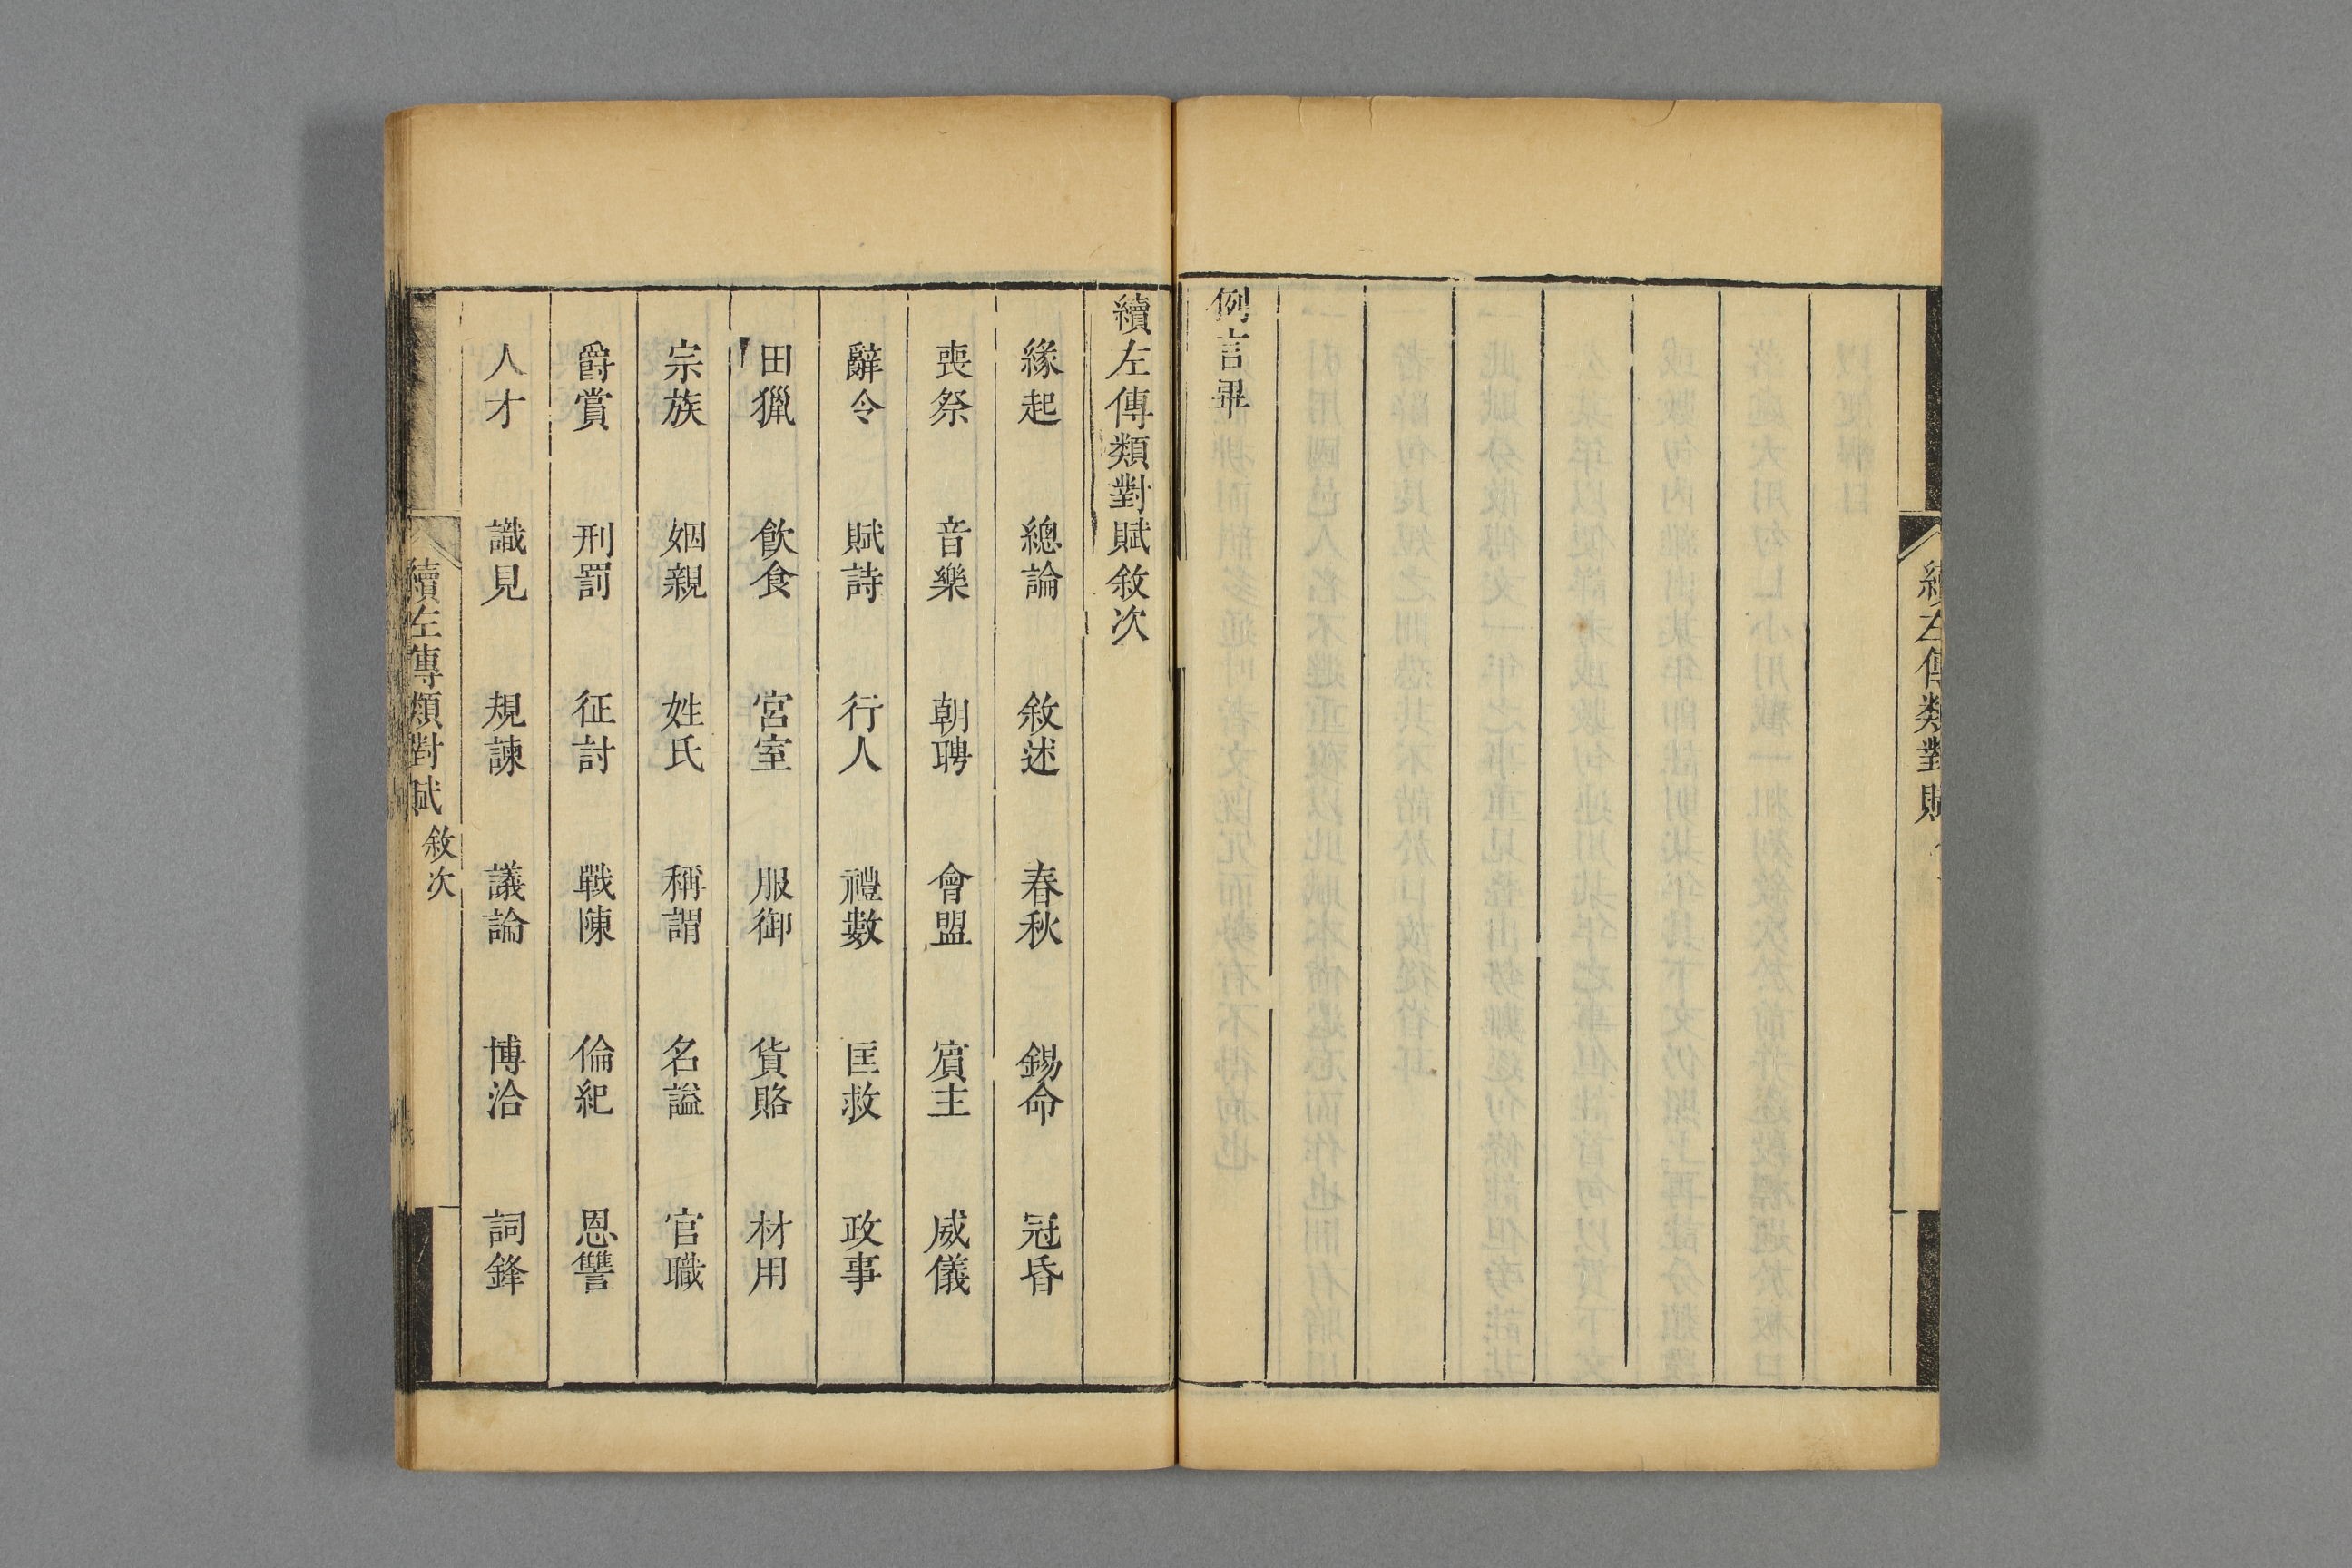 續左傳類對賦
例言畢
續左傳類對賦敘次
緣起 總論 敘述 春秋 錫命 冠昏
喪祭 音樂 朝聘 會盟 賓主 威儀
辭令 賦詩 行人 禮數 匡救 政事
田獵 飲食 宮室 服御 貨賂 材用
宗族 姻親 姓氏 稱謂 名謚 官職
爵賞 刑罰 征討 戰陳 倫紀 恩讐
人才 識見 規諫 議論 博洽 詞鋒
續左傳類對賦 敘次